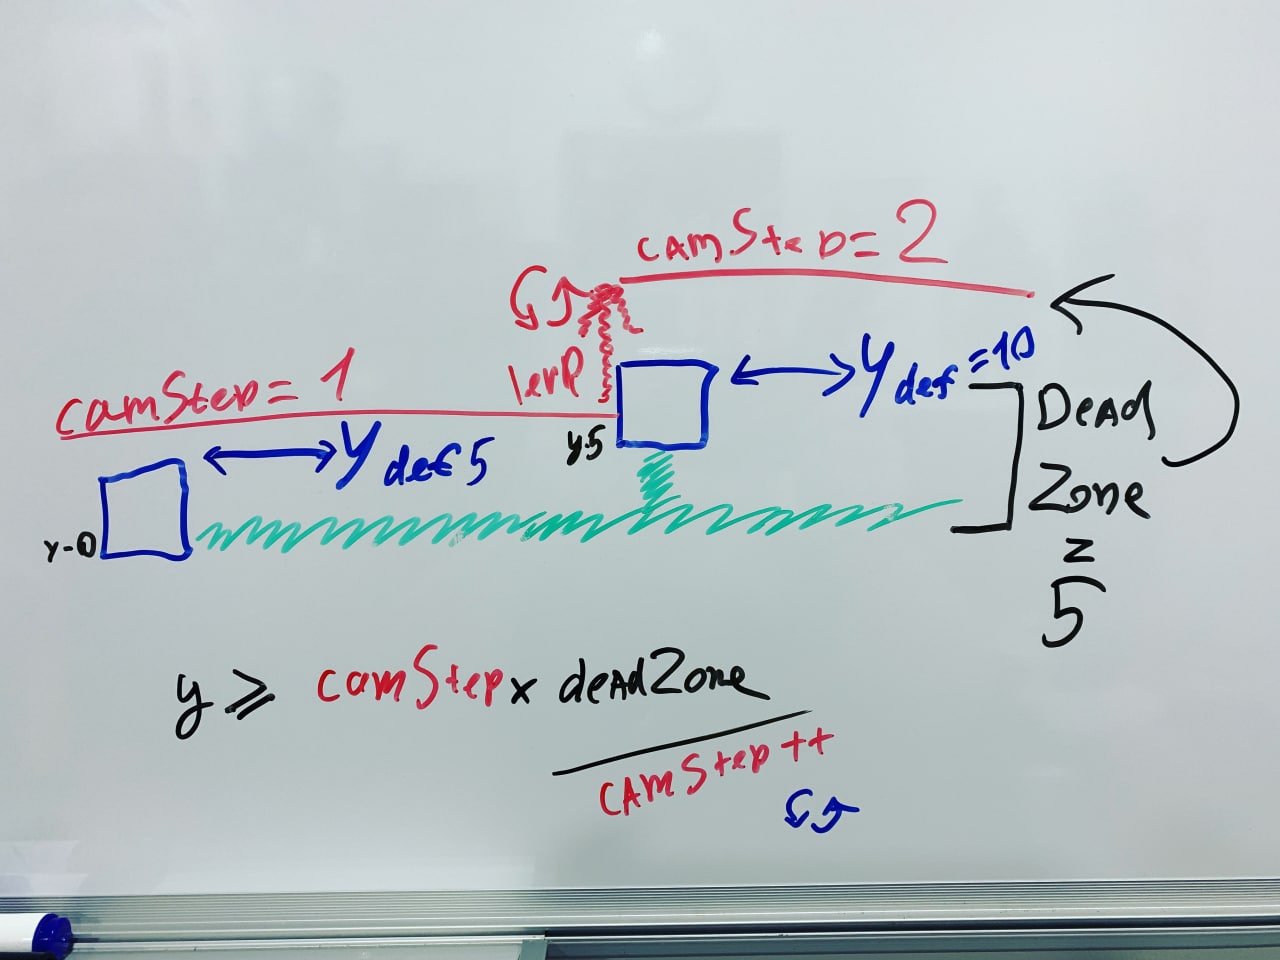 camStep = 2
lerp
camStep = 1
y def = 10
y def 5
y-5
y-0
Dead
Zone
=
5
y ≥ camStep x deadZone
camStep ++